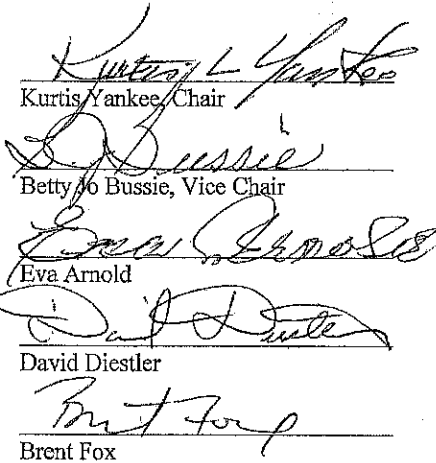 Kurtis L Yankee
Kurtis Yankee, Chair
BJ Bussie
Betty Jo Bussie, Vice Chair
Eva Arnold
David Diestler
Brent Fox
Brent Fox